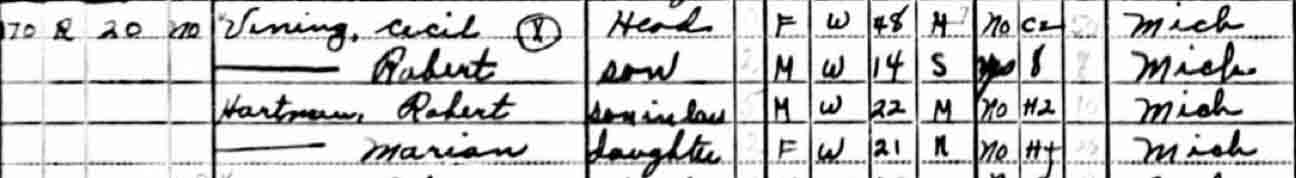 70 R 20 no Vining, Cecil (X) Head F W 48 M 7 No C2 Mich
—— Robert son M W 14 S yes 8 Mich
Hartman, Robert son in law M W 22 M no H2 Mich
—— Marian daughter F W 21 M no H4 Mich